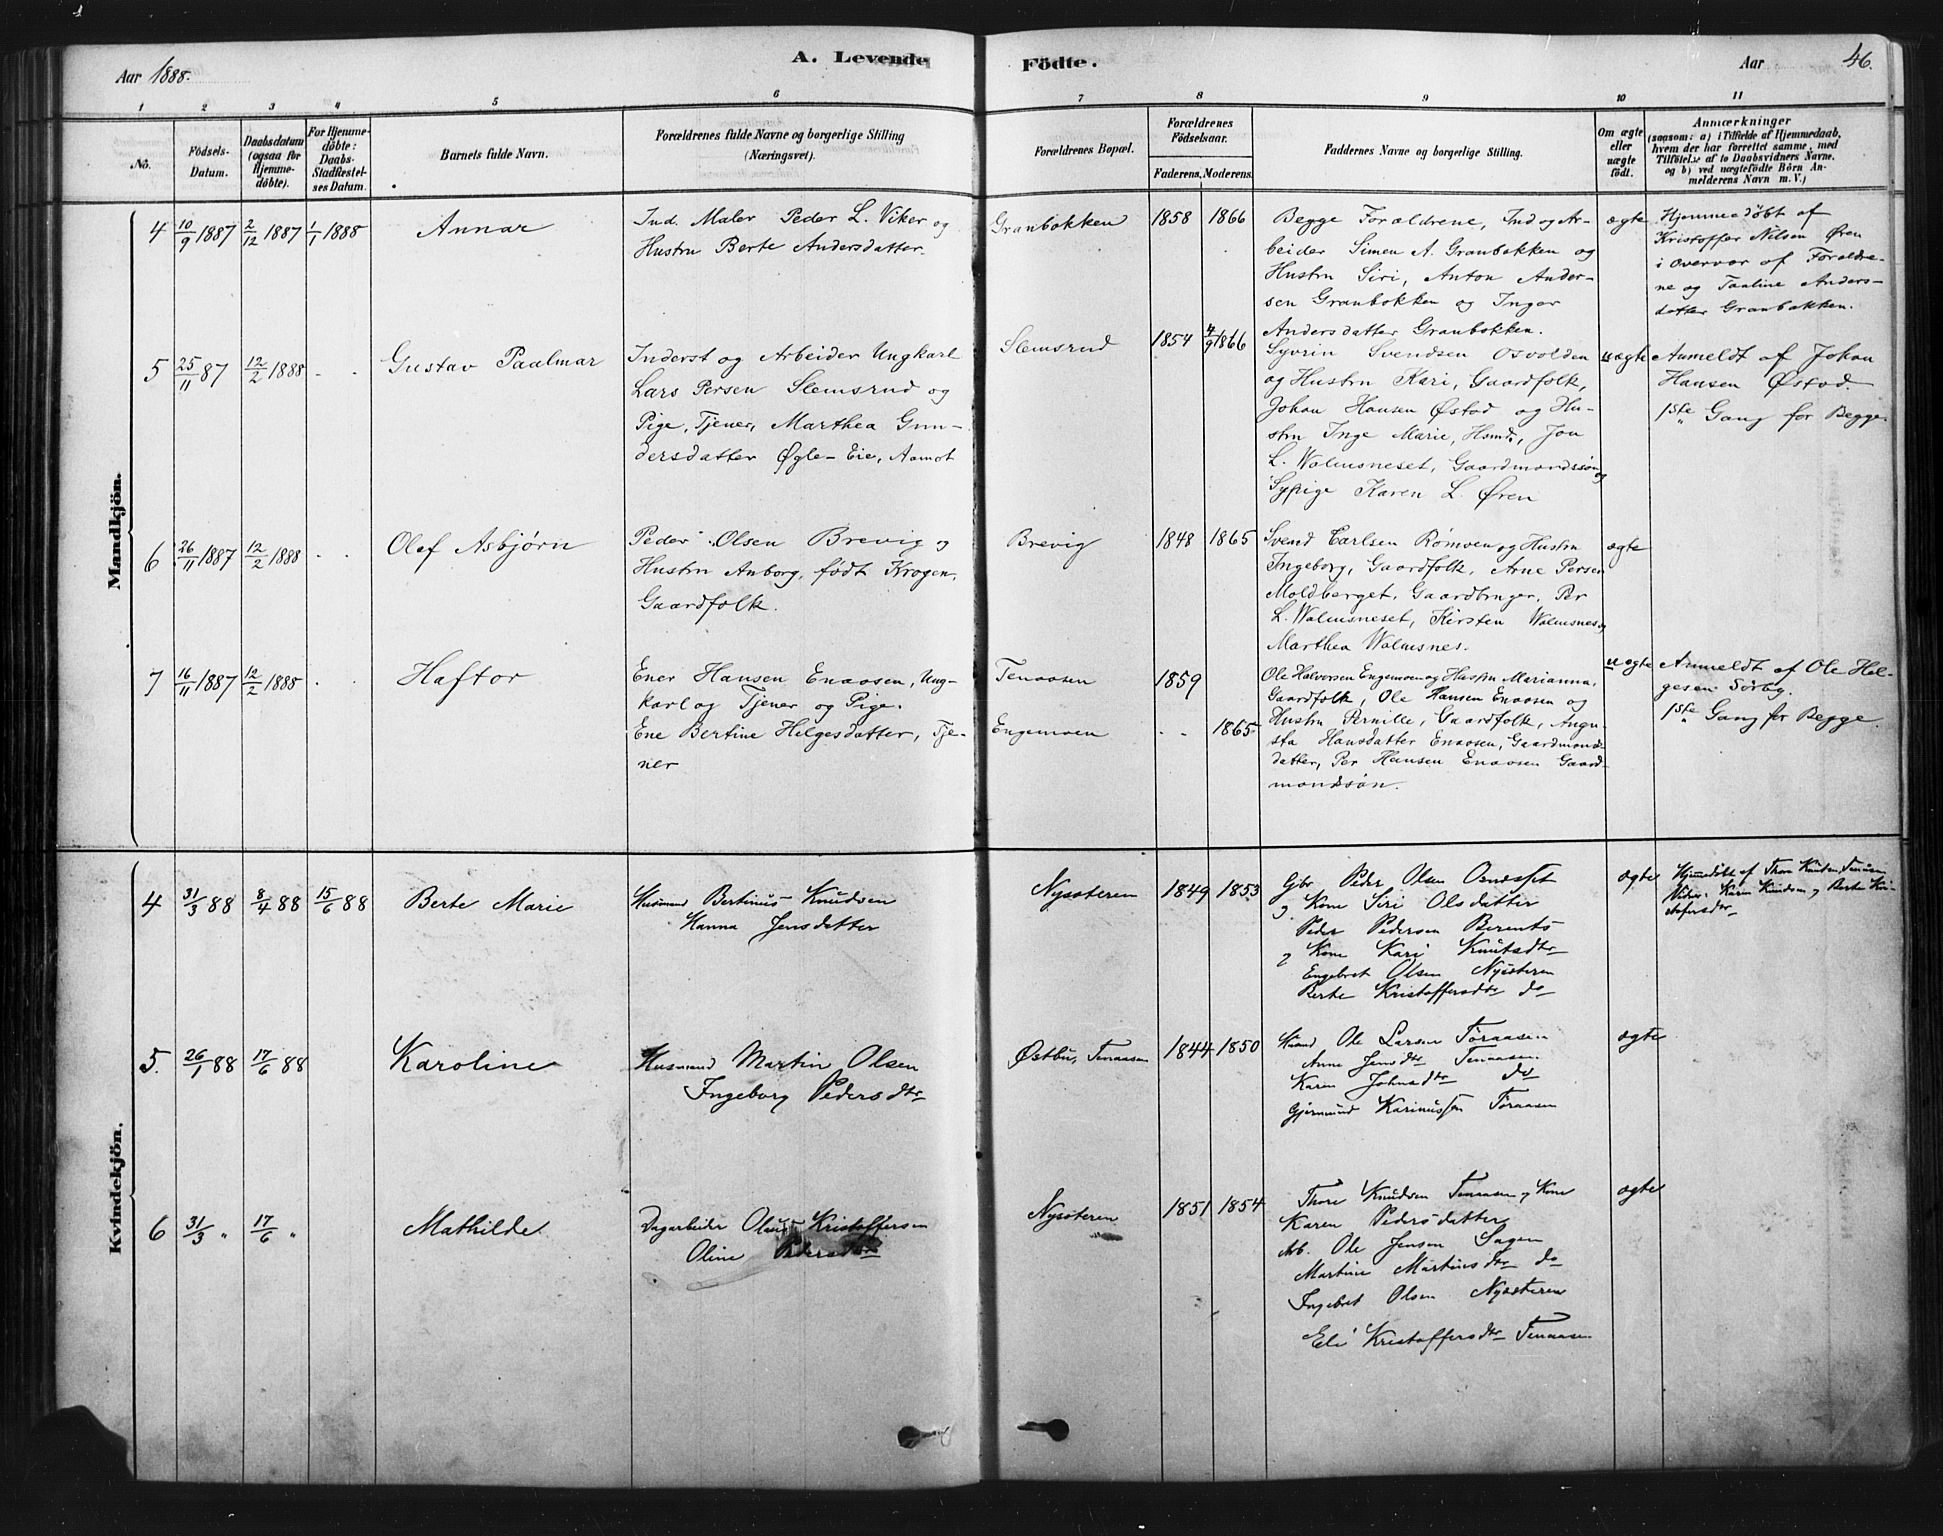 Aar 1888.
A. Levende
Födte.
Aar
46.
1 2 3 4 5 6 7 8 9 10 11
No.
Födsels-Datum.
Daabsdatum (ogsaa for Hjemmedöbte).
For Hjemmedöbte: Daabs-Stadfæstelses Datum.
Barnets fulde Navn.
Forældrenes fulde Navne og borgerlige Stilling (Næringsvei).
Forældrenes Bopæl.
Forældrenes Födselsaar.
Faderens. Moderens.
Faddernes Navne og borgerlige Stilling.
Om ægte eller uægte födt.
Anmærkninger
(saasom: a) i Tilfælde af Hjemmedaab, hvem der har forrettet samme, med Tilföielse af to Daabsvidners Navne, og b) ved uægtefödte Börn Anmelderens Navn m. V.)
Mandkjön.
4 10/9 1887 2/12 1887 1/1 1888 Annar
Ind. Maler Peder L. Viker og
Hustru Berte Andersdatter.
Granbakken 1858 1866
Begge Forældrene, Ind og Ar-
beider Simen A. Granbakken og
Hustru Siri, Anton Ander-
sen Granbakken og Inger
Andersdatter Granbakken.
ægte
Hjemmedøbt af
Kristoffer Nilsen Øren
i overvær af Foraldre-
ne og Paaline Anders-
datter Granbakken.
5 25/11 87 12/2 1888 Gustav Paalmar
Inderst og Arbeider Ungkarl
Lars Persen Slemsrud og
Pige, Tjener, Marthea Gun-
dersdatter Øgle-Eie, Aamot
Slemsrud 1854 4/9 1866
Syvrin Svendsen Osvolden
og Hustru Kari, Gaardfolk,
Johan Hansen Østad og Hu-
stru Inge Marie, Hsmd., Jon
L. Walmsneset, Gaardmandssøn og
Sypige Karen L. Øren
uægte
Anmeldt af Johan
Hansen Østad.
1ste Gang for Begge.
6 26/11 1887 12/2 1888 Olaf Asbjørn
Peder Olsen Brevig og
Hustru Anborg, født Krogen,
Gaardfolk.
Brevig 1848 1865
Svend Carlsen Rømoen og Hustru
Ingeborg, Gaardfolk, Arne Persen
Moldberget, Gaardbruger, Per
L. Walmsneset, Kirsten Walmsnes og
Marthea Walmsnes.
ægte
7 16/11 1887 12/2 1888 Haftor
Ener Hansen Enaosen, Ung-
karl og Tjener og Pige.
Ene Bertine Helgesdatter, Tje-
ner
Tenaasen 1859
Engemoen 1865
Ole Halvorsen Engemoen og Hustru Marianna,
Gaardfolk, Ole Hansen Enaosen og
Hustru Pernille, Gaardfolk, Augu-
sta Hansdatter Enaosen, Gaardmands-
datter, Per Hansen Enaosen Gaard-
mandssøn.
uægte
Anmeldt af Ole Hel-
gesen Sörbg.
1ste Gang for Begge.
Kvindekjön.
4 31/3 88 8/4 88 15/6 88 Berte Marie
Husmand Bertinus Knudsen
Hanna Jensdatter
Nysæteren 1849 1853
Gbr Peder Olsen
og Kone Siri Olsdatter
Peder Pedersen Berents
og Kone Kari Knutsdtr
Engebret Olsen Nysæteren
Berte Kristoffersdtr do
ægte
Hjemmedøbt af Thore Knudsen Tenaasen
Karen Knudsen og Berte Kri-
stofersdtr
5. 26/1 88 17/6 88 Karoline
Husmand Martin Olsen
Ingeborg Pedersdtr
Østbu, Tenaasen 1844 1850
Husmd Ole Larsen Toraasen
Anne Jensdtr Tenaasen.
Karen Johnsdtr do
Gjermund Karinussen Toraasen
ægte
6 31/3 " 17/6 " Mathilde
Dagarbeider Olaus Kristoffersen
Oline Pedersdtr
Nysæteren 1851 1854
Thore Knudsen Tenaasen og Kone
Karen Pedersdatter
Arb. Ole Jensen Sagen
Martine Martinsdtr do
Ingebret Olsen Nysæteren
Eli Kristoffersdtr Tenaasen
ægte